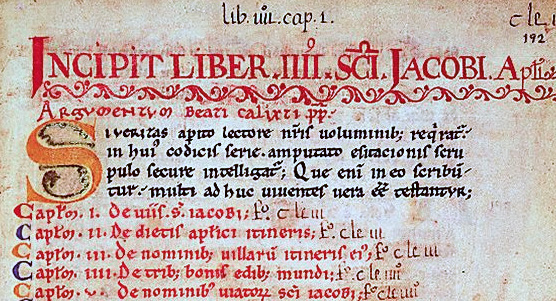 lib. iiii. cap. 1.
c le i
192
INCIPIT LIBER .IIII. SCI. JACOBI. Apli
Argumentum Beati calixti pp.
Si veritas apito lectore nris voluminib; reqrat
in hui codicis serie. amputato esitacionis scru
pulo secure intelligat; Que eni in eo scribu
tur. multi ad huc viventes vera ee testantur;
Caplm. I. De viis. S. iacobi; fo. c le iii
Caplm. II. De dietis aplici itineris; fo. c le iii
Caplm. III. De nominib; villaru itineris ei; fo. c le iii
Caplm. IIII. De trib; bonis edib; mundi; fo. c le iiii
Caplm. v. De nominib; viator sci iacobi; fo. c le iiii